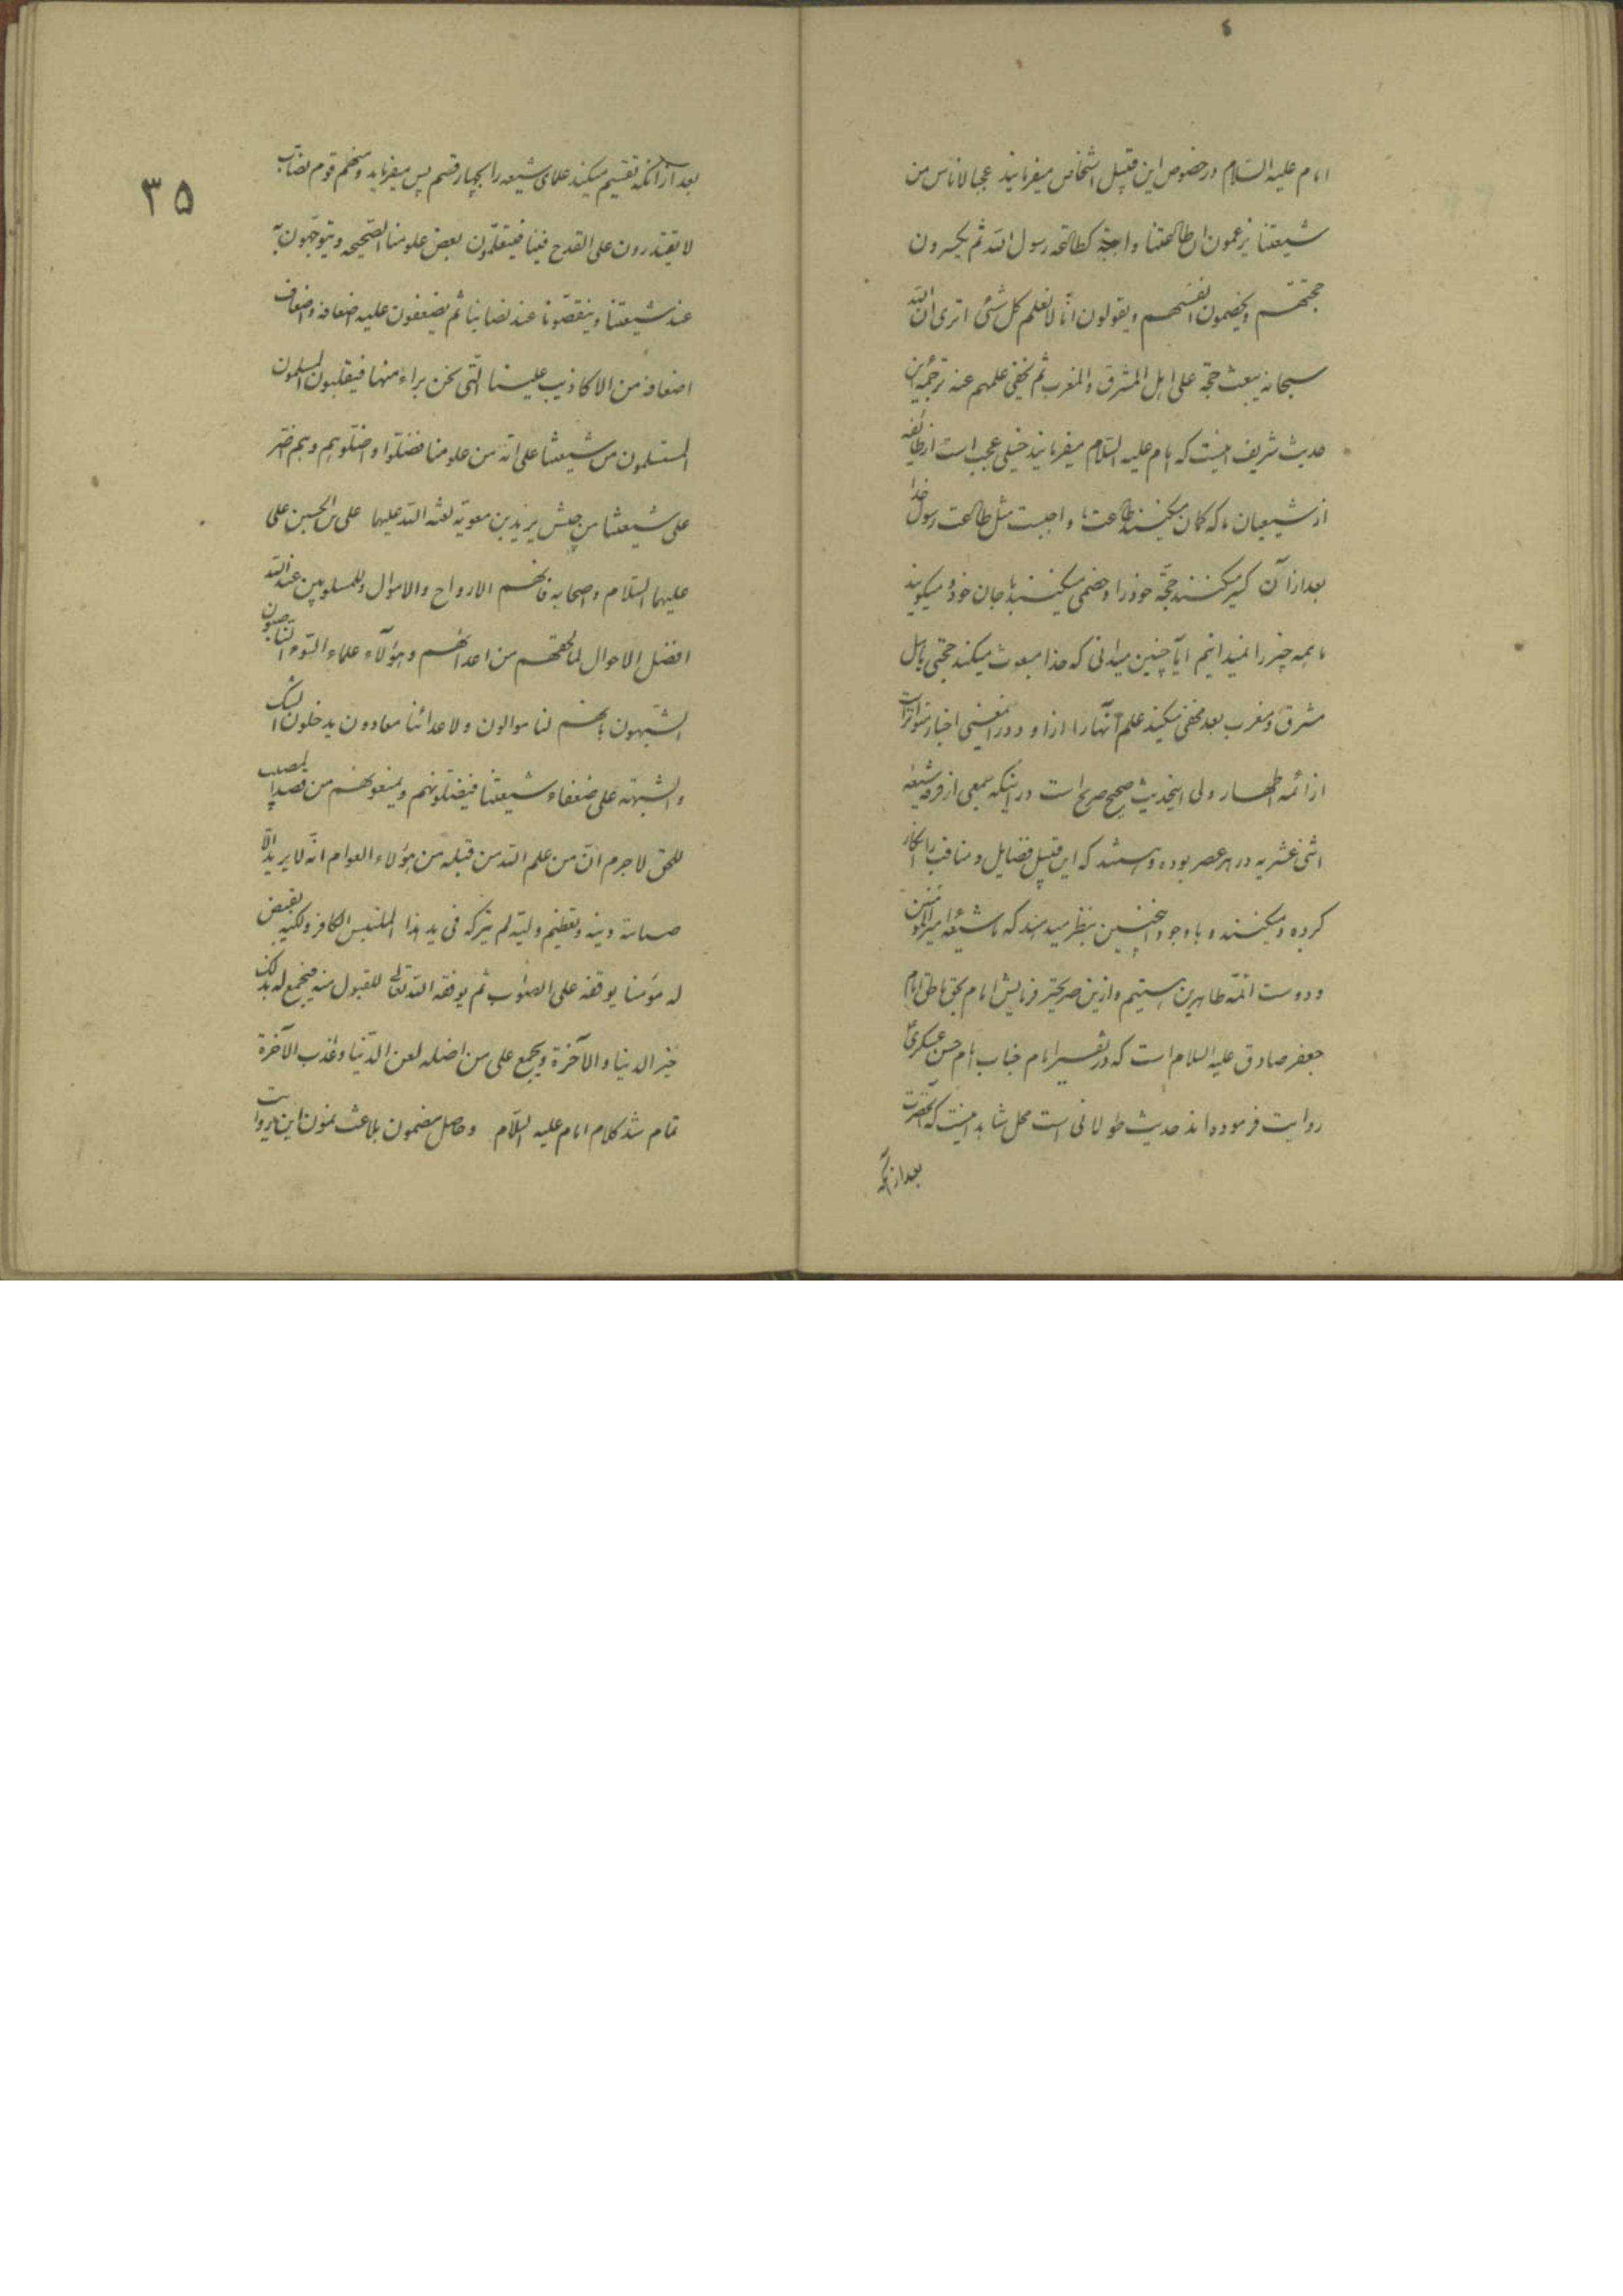 ٤
امام علیه السلام در خصوص این قبیل اشخاص میفرمایند عجبا لاناس من
شیعتنا یزعمون ان طاعتنا واجبة کطاعة رسول الله ثم یکسرون
حجتهم و یخصمون انفسهم و یقولون انّا لا نعلم کل شئ اتری ان الله
سبحانه یبعث حجة علی اهل المشرق والمغرب ثم یخفی علمهم عنه ترجمه این
حدیث شریف اینست که امام علیه السلام میفرمایند خیلی عجب است از طایفه
از شیعیان ما که کمان میکنند طاعت ما واجبست مثل طاعت رسول خدا
بعد از آن کسر میکنند حجّة خود را و خصمی میکنند با جان خود و میکویند
ما همه چیز را نمیدانیم آیا چنین میدانی که خدا مبعوث میکند حجتی باهل
مشرق و مغرب بعد مخفی میکند علم آنها را از او و در اینمعنی اخبار متواتر است
از ائمه اطهار ولی اینحدیث صحیح صریح است در اینکه جمعی از فرقه شیعه
اثنی عشریه در هر عصر بوده و هستند که این قبیل فضایل و مناقب را انکار
کرده و میکنند و با وجود اینچنین بنظر میدهند که ما شیعه امیرالمؤمنین
و دوست ائمّه طاهرین هستیم و ازین صریحتر فرمایش امام بحق ناطق امام
جعفر صادق علیه السلام است که در تفسیر امام جناب امام حسن عسکری
روایت فرموده اند حدیث طولانی است محل شاهد اینست که آنحضرت
بعد از آنکه
٣٥
بعد از آنکه تقسیم میکند علمای شیعه را بچهار قسم پس میفرماید و منهم قوم نصّاب
لا یقتدرون علی القدح فینا فیتعلّمون بعض علومنا الصّحیحه و یتوجّهون به
عند شیعتنا و ینقصّونا عند نصابنا ثم یضعفون علیه اضعافه و اضعاف
اضعافه من الاکاذیب علینا الّتی نحن براء منها فیقلبون المسلمون
المستسلمون من شیعتنا علی انّه من علومنا فضلّوا و اضلّوهم و هم اضر
علی شیعتنا من جیش یزید بن معویّه لعنه الله علیهما علی الحسین بن علی
علیهما السّلام و اصحابه فانّهم الارواح والاموال وللمسلوبین عند الله
افضل الاحوال لما لحقهم من اعدائهم و هؤلآء علماء السّوء النّاصبون
المشبّهون بانّهم لنا موالون و لاعدائنا معادون یدخلون الشک
والشبهة علی ضعفاء شیعتنا فیضلّونهم و یمنعونهم من قصد
للحق لاجرم انّ من علم الله من قبله من هؤلاء العوام انّه لا یرید الّا
صیانة دینه و تعظیم ولیّه لم یترکه فی ید هذا الملبّس الکافر ولکنّه یقیض
له مؤمنا یوقفه علی الصّواب ثم یوفقه الله تعالی للقبول منه فیجمع له بذلک
خیر الدنیا والآخرة و یجمع علی من اضله لعن الدّنیا و عذاب الآخرة
تمام شد کلام امام علیه السّلام و حاصل مضمون بلاغت نمون این روایت